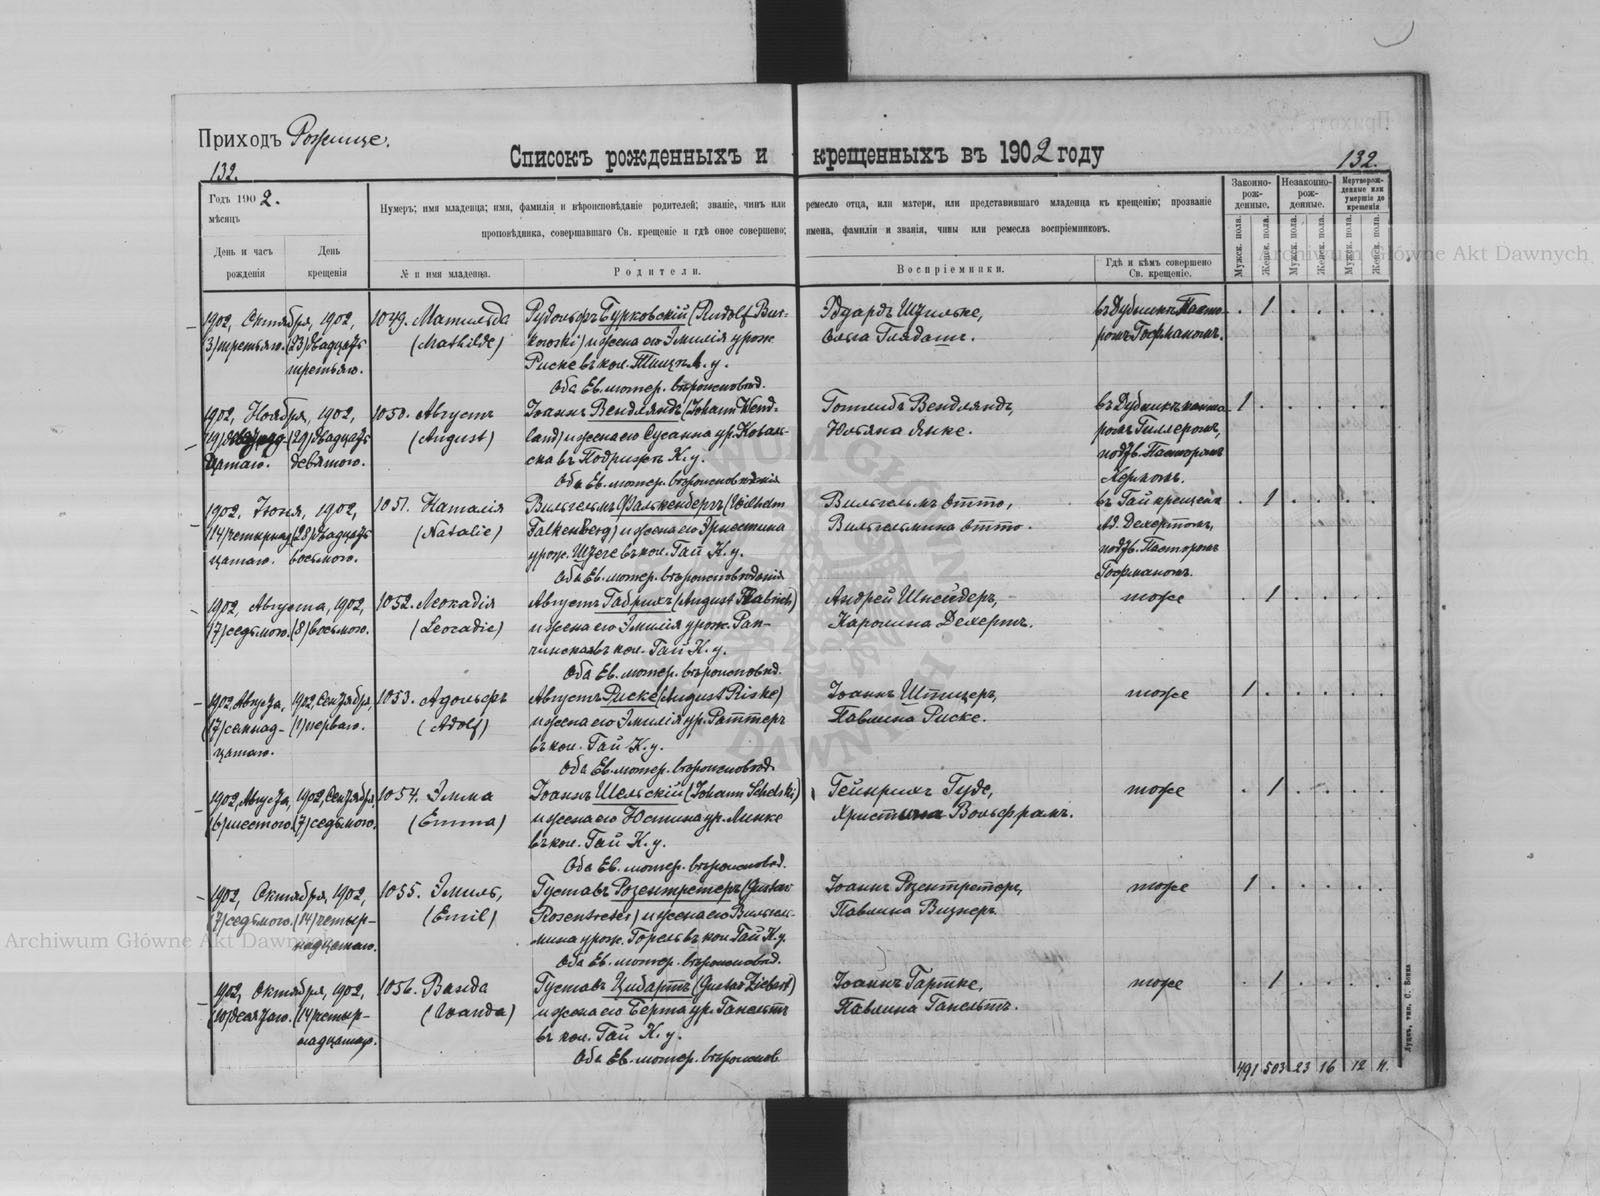 Приходъ Рожище.
132.
Списокъ рожденныхъ и крещенныхъ въ 1902 году
132.
Годъ 1902.
мѣсяцъ
День и часъ рожденія
День крещенія
Нумеръ; имя младенца; имя, фамилія и вѣроисповѣданіе родителей; званіе, чинъ или ремесло отца, или матери, или представившаго младенца къ крещенію; прозваніе
проповѣдника, совершавшаго Св. крещеніе и гдѣ оное совершено; имена, фамиліи и званія, чины или ремесла воспріемниковъ.
№ и имя младенца.
Родители.
Воспріемники.
Гдѣ и кѣмъ совершено Св. крещеніе.
Законно-рож-денные.
Незаконно-рож-денные.
Мертворож-денные или умершіе до крещенія
Мужск. пола.
Женск. пола.
Мужск. пола.
Женск. пола.
Мужск. пола.
Женск. пола.
1902, Октября, 1902,
3) третьяго. (23) двадцать
третьяго.
1049. Матильда
(Mathilde)
Рудольфъ Бурковскій (Rudolf Bur-
kowski) и жена его Эмилія урож.
Риске въ кол. у.
Оба Ев. лютер. вѣроисповѣд.
Эдуардъ
Ольга
въ Дубникъ Пасто-
ромъ Гофманомъ.
. 1 . . . .
1902, Ноября, 1902,
(19) (29) двадцать
цатаго. девятого.
1050. Августъ
(August)
Іоаннъ Вендляндъ (Johann Wend-
land) и жена его Сусанна ур. Коваль-
ска въ К. у.
Оба Ев. лютер. вѣроисповѣданія
Готлибъ Вендляндъ,
Юльяна Янке.
въ Дубникъ канто-
ромъ Гиллеромъ,
подтв. Пасторомъ
Керномъ.
1 . . . . .
1902, Іюня, 1902,
(14) четырнад- (28) двадцать
цатаго. восьмого.
1051. Наталія
(Natalie)
Вильгельмъ Фалькенбергъ (Wilhelm
Falkenberg) и жена его Эрнестина
урож. въ кол. Гай К. у.
Оба Ев. лютер. вѣроисповѣданія
Вильгельмъ Отто,
Вильгельмина Отто.
въ Гай крещена
Ад. Дехертомъ,
подтв. Пасторомъ
Гофманомъ.
. 1 . . . .
1902, Августа, 1902,
(7) седьмого. (8) восьмого.
1052. Леокадія
(Leocadie)
Августъ Габрихъ (August Habrich)
и жена его Эмилія урож. Рап-
чинская въ кол. Гай К. у.
Оба Ев. лютер. вѣроисповѣд.
Андрей Шнейдеръ,
Каролина Дехертъ.
тоже
. 1 . . . .
1902, Августа, 1902, Сентября,
(17) семнад- (1) перваго.
цатаго.
1053. Адольфъ
(Adolf)
Августъ Риске (August Riske)
и жена его Эмилія ур. Раттеръ
въ кол. Гай К. у.
Оба Ев. лютер. вѣроисповѣд.
Іоаннъ Штицеръ,
Павлина Риске.
тоже
1 . . . . .
1902, Августа, 1902, Сентября
(6) шестого. (7) седьмого.
1054. Эмма
(Emma)
Іоаннъ Шельскій (Johann Schelski)
и жена его Юстина ур. Линке
въ кол. Гай К. у.
Оба Ев. лютер. вѣроисповѣд.
Гейнрихъ Гуде,
Христина Вольфрамъ.
тоже
. 1 . . . .
1902, Октября, 1902,
(7) седьмого. (14) четыр-
надцатаго.
1055. Эмиль,
(Emil)
Густавъ Розентретеръ (Gustav
Rosentreter) и жена его Вильгель-
мина урож. Горель въ кол. Гай К. у.
Оба Ев. лютер. вѣроисповѣд.
Іоаннъ Розентретеръ,
Павлина Визнеръ.
тоже
1 . . . . .
1902, Октября, 1902,
(10) десятаго. (14) четыр-
надцатаго.
1056. Ванда
(Wanda)
Густавъ Цибартъ (Gustav Ziebart)
и жена его Берта ур. Гапельтъ
въ кол. Гай К. у.
Оба Ев. лютер. вѣроисповѣд.
Іоаннъ Гартке,
Павлина Гапельтъ.
тоже
. 1 . . . .
491 503 23 16 12 4.
Archiwum Główne Akt Dawnych
Archiwum Główne Akt Dawnych